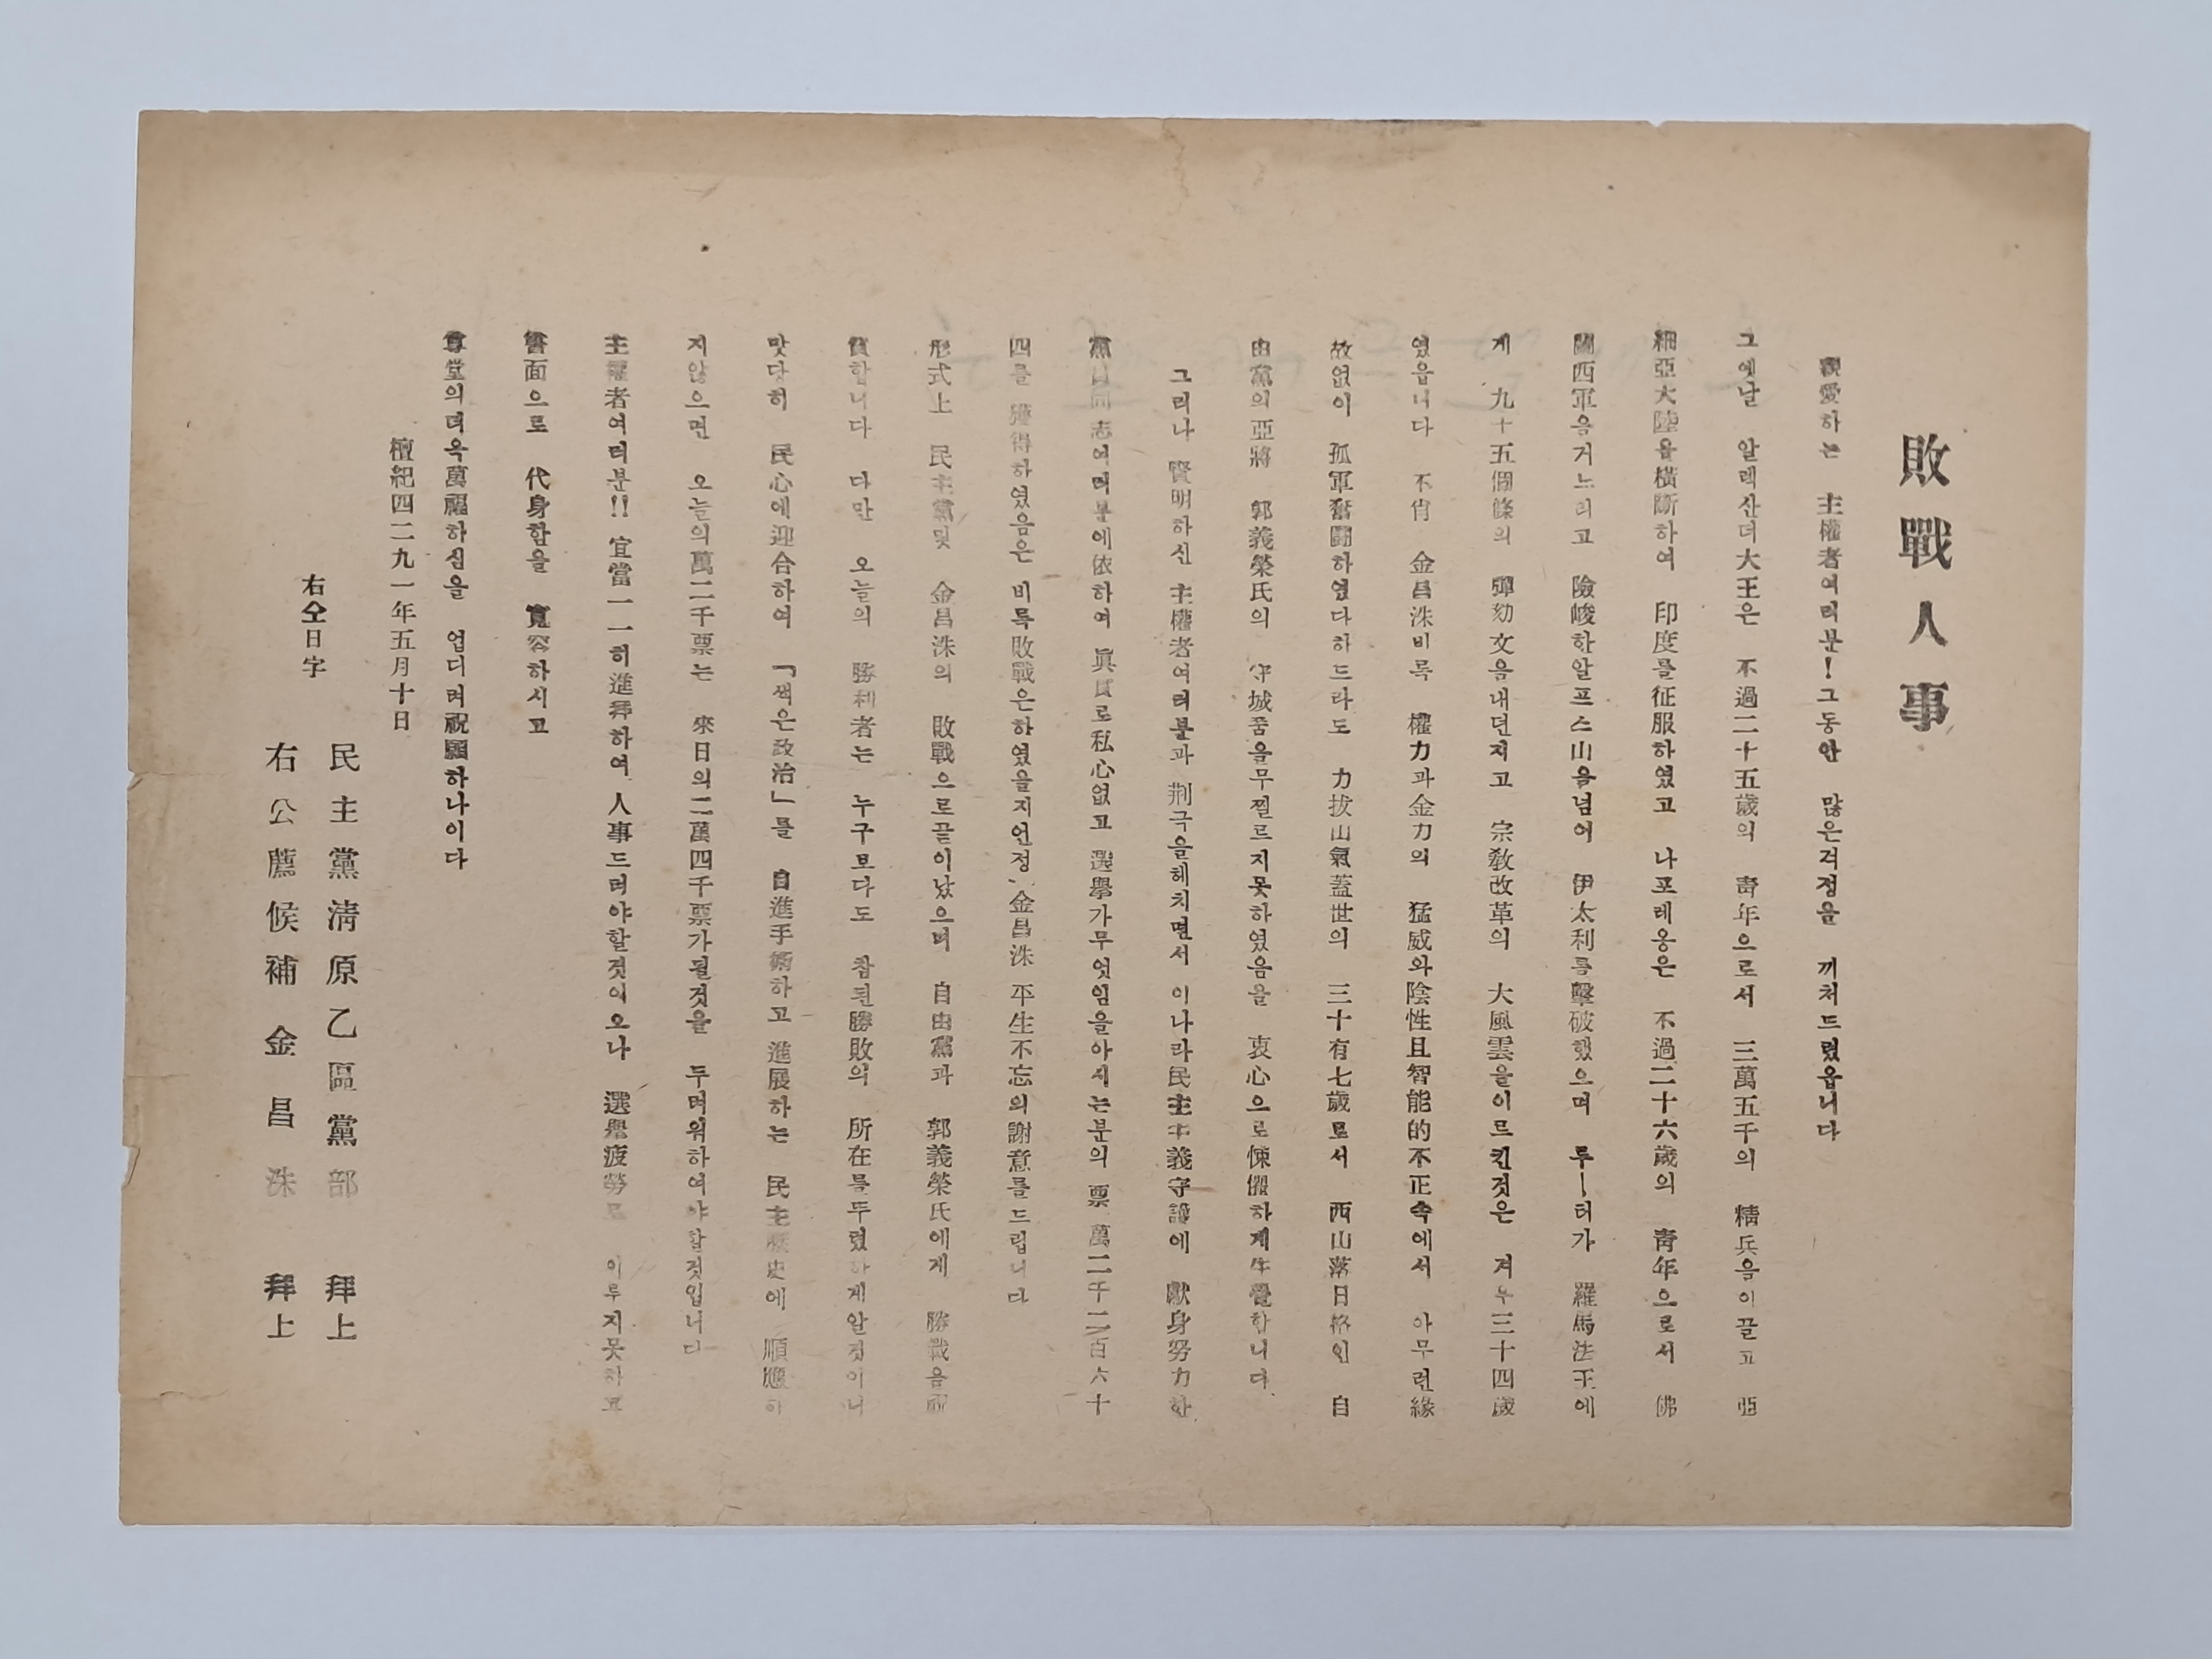 敗戰人事
親愛하는 主權者여러분！그동안 많은걱정을 끼처드렸읍니다
그옛날 알렉산더大王은 不過二十五歲의 靑年으로서 三萬五千의 精兵을이끌고 亞
細亞大陸을橫斷하여 印度를征服하였고 나포레옹은 不過二十六歲의 靑年으로서 佛
蘭西軍을거느리고 險峻한알프스山을넘어 伊太利를擊破했으며 루ー터가 羅馬法王에
게 九十五個條의 彈劾文을내던지고 宗敎改革의 大風雲을이르킨것은 겨우三十四歲
였읍니다 不肖 金昌洙비록 權力과金力의 猛威와陰性且智能的不正속에서 아무런緣
故없이 孤軍奮鬪하였다하드라도 力拔山氣蓋世의 三十有七歲로서 西山落日格인 自
由黨의亞將 郭義榮氏의 守城품을무찔르지못하였음을 衷心으로悚懼하게生覺합니다
그러나 賢明하신 主權者여러분과 荆극을헤치면서 이나라民主主義守護에 獻身努力한
黨員同志여러분에依하여 眞實로私心없고 選擧가무엇임을아시는분의 票 萬二千二百六十
四를 獲得하였음은 비록敗戰은하였을지언정、金昌洙 平生不忘의謝意를드립니다
形式上 民主黨및 金昌洙의 敗戰으로끝이났으며 自由黨과 郭義榮氏에게 勝戰을祝
賀합니다 다만 오늘의 勝利者는 누구보다도 참된勝敗의 所在를뚜렸하게알것이니
맛당히 民心에迎合하여 「썩은政治」를 自進手術하고 進展하는 民主歷史에 順應하
지않으면 오늘의萬二千票는 來日의二萬四千票가될것을 두려워하여야할것입니다
主權者여러분!! 宜當一一히進拜하여 人事드려야할것이오나 選擧疲勞로 이루지못하고
書面으로 代身함을 寬容하시고
尊堂의더욱萬福하심을 업디려祝願하나이다
檀紀四二九一年五月十日
右仝日字
民主黨淸原乙區黨部 拜上
右公薦候補 金昌洙 拜上